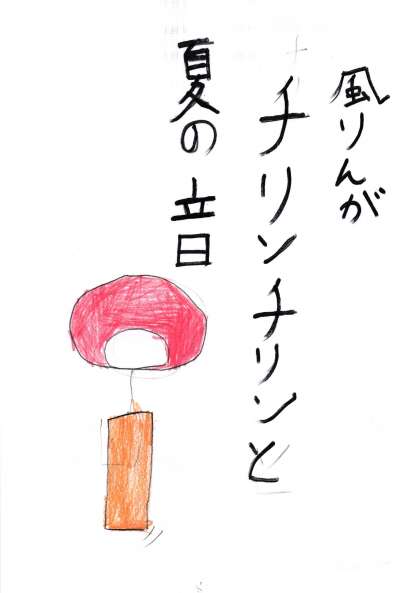 風りんが
チリンチリンと
夏の音